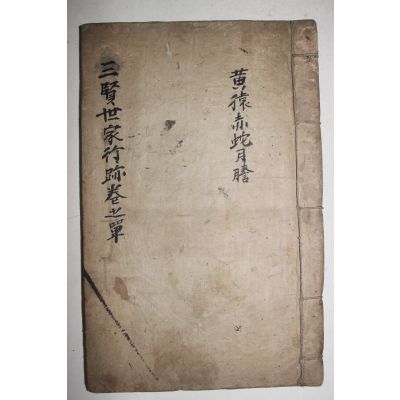 黃猿赤蛇月謄
三賢世家行跡卷之單